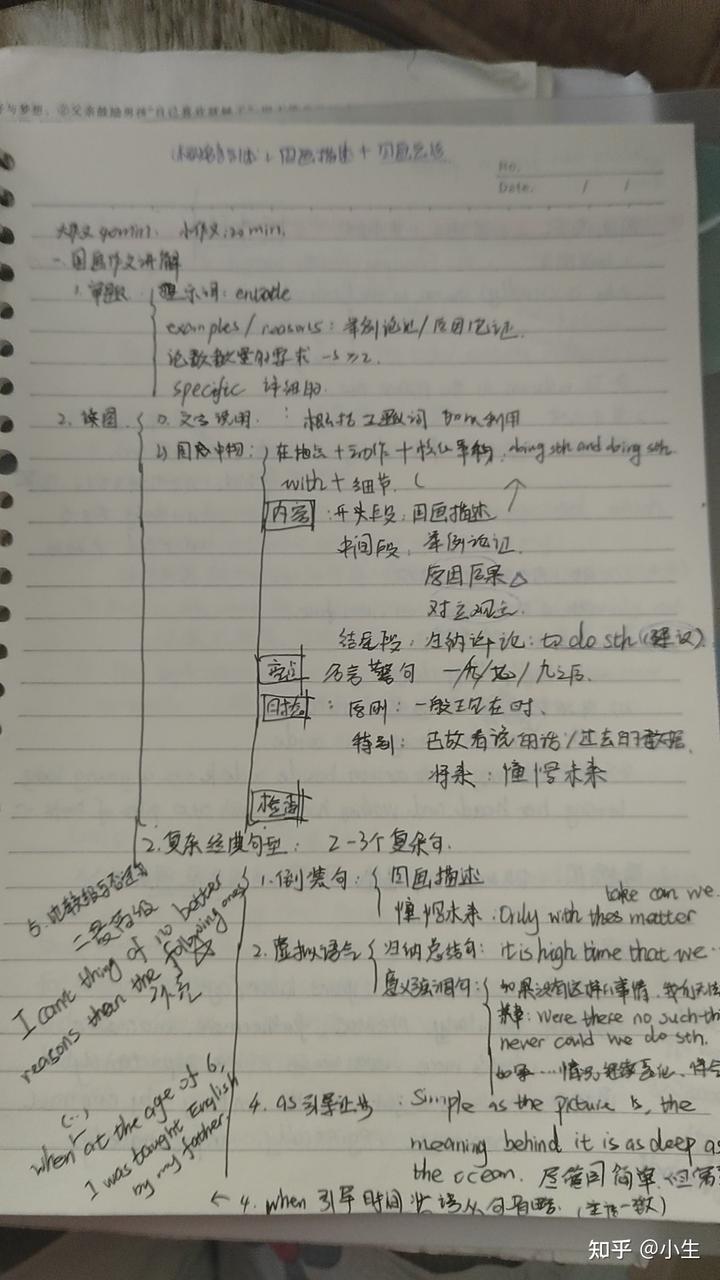 与梦想，②父亲鼓励男孩“自己喜欢就够了”
+ 图画描述 +
No.
Date. / /
大作文40min. 小作文:20min.
一.图画作文讲解
1.审题 提示词: entitle
examples / reasons: 举例论证/原因论证.
论数数量的要求 -s ≥2.
specific 详细的.
2. 读图 文字说明. : 概括主题词
2) 图片中物: 在地点+动作+核心单物. doing sth and doing sth
with+细节. (
内容 : 开头段: 图画描述
中间段: 举例论证.
原因后果△
对立观点.
结尾段: 归纳评论: to do sth (建议)
亮点 名言警句
时态 : 原则: 一般现在时.
特别: 已故者说的话/过去的数据.
将来: 憧憬未来
检查
2.复杂经典句型: 2-3个复杂句.
1.倒装句: 图画描述
take can we.
憧憬未来: Only with thes matter
2. 虚拟语气 归纳总结句: it is high time that we…
意义强调句: 如果没有这样的事情, 我们无法
: Were there no such th
never could we do sth.
如果…情况继续恶化,
4. as引导让步 : Simple as the picture is, the
meaning behind it is as deep as
the ocean. 尽管图简单,但
← 4. when 引导时间状语从句省略. (主语一致)
5. 比较级与否定句
=最高级
I cant thing of no better
reasons than the following ones
(..)
when at the age of 6,
I was taught English
by my father.
知乎 @小生